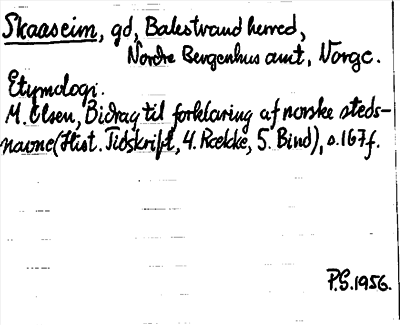 Skaaseim, gd, Balestrand herred,
Nordre Bergenhus amt, Norge.
Etymologi.
M. Olsen, Bidrag til forklaring af norske steds-
navne (Hist. Tidskrift, 4. Række, 5. Bind), s. 167f.
P.S. 1956.